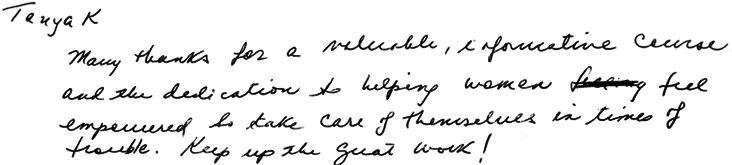 Tanya K
Many thanks for a valuable, informative course
and the dedication to helping women feel
empowered to take care of themselves in times of
trouble. Keep up the great work!